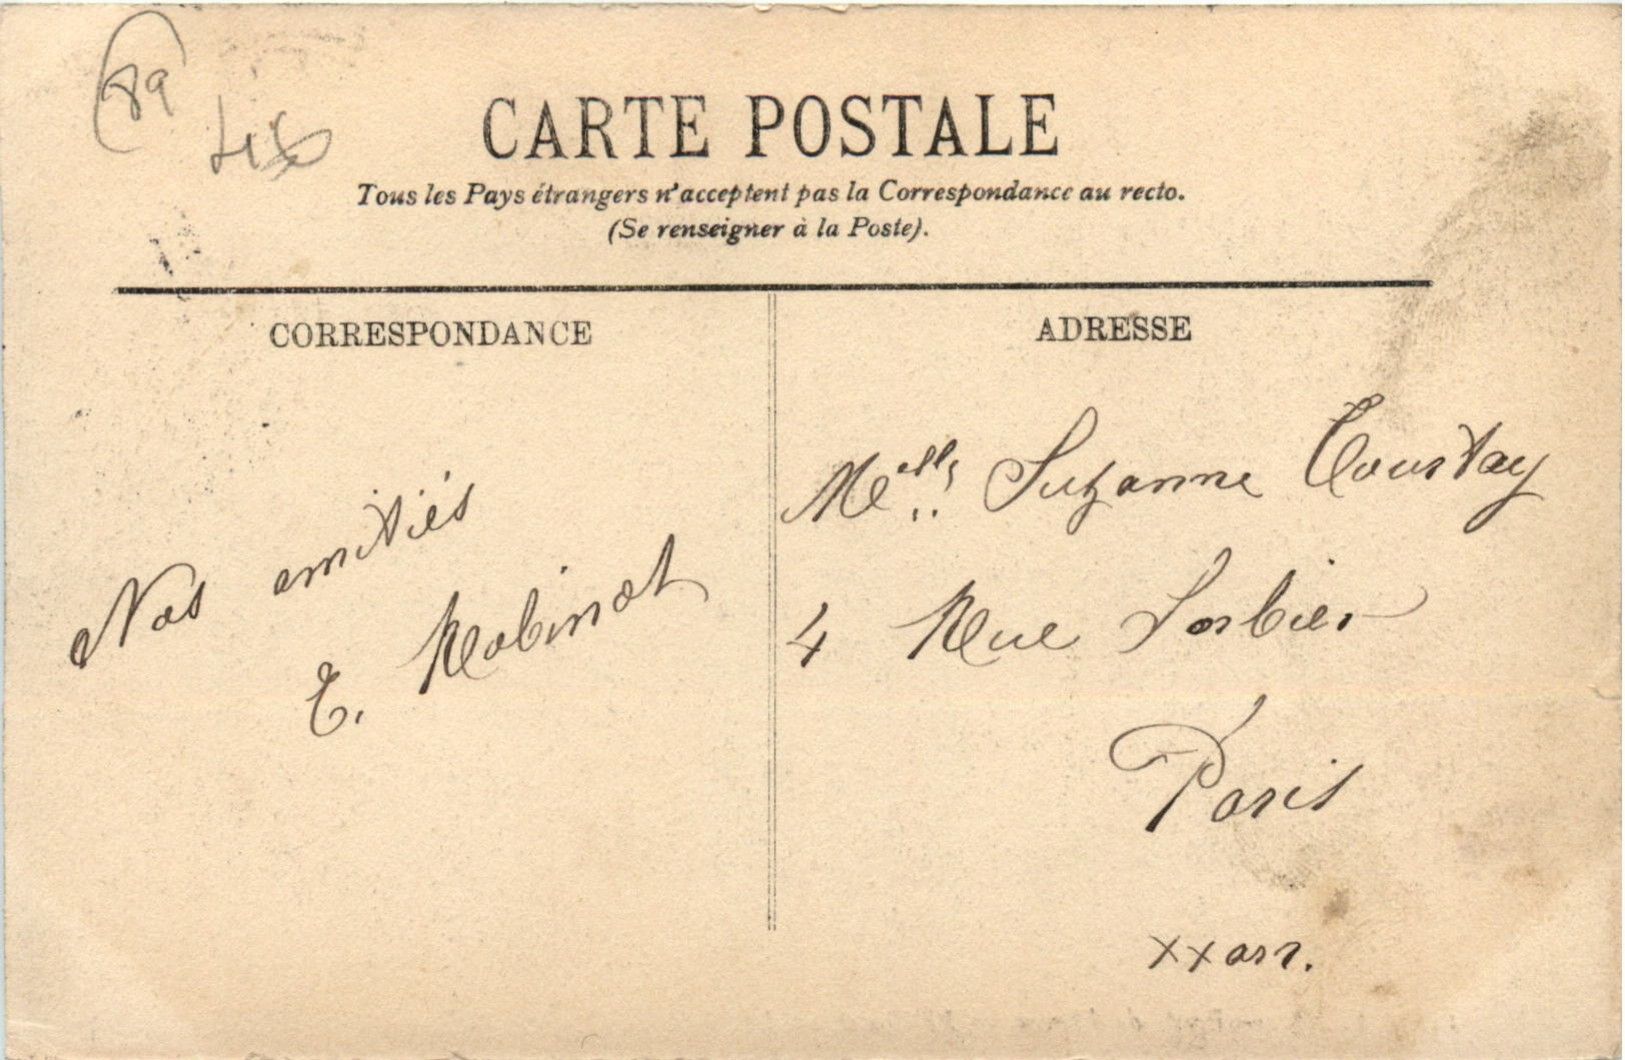 89
CARTE POSTALE
Tous les Pays étrangers n'acceptent pas la Correspondance au recto.
(Se renseigner à la Poste).
CORRESPONDANCE
Nos amitiés
E. Robinot
ADRESSE
Melle Suzanne Courtay
4 Rue Sorbier
Paris
XX arr.